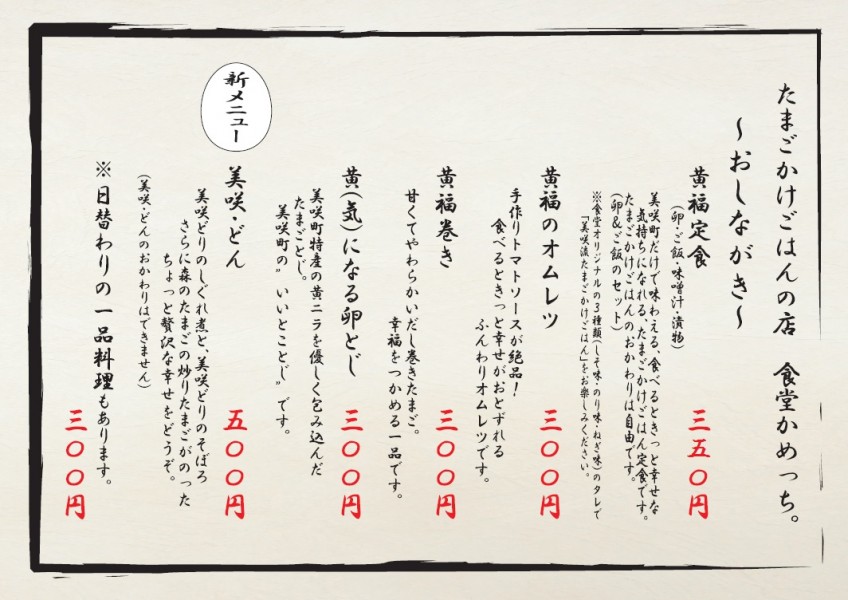 たまごかけごはんの店　食堂かめっち。
～おしながき～
黄福定食　三五〇円
（卵・ご飯・味噌汁・漬物）
美咲町だけで味わえる、食べるときっと幸せな
気持ちになれる、たまごかけごはん定食です。
たまごかけごはんのおかわりは自由です。
（卵＆ご飯のセット）
※食堂オリジナルの３種類（しそ味・のり味・ねぎ味）のタレで
「美咲流たまごかけごはん」をお楽しみください。
黄福のオムレツ　三〇〇円
手作りトマトソースが絶品！
食べるときっと幸せがおとずれる
ふんわりオムレツです。
黄福巻き　三〇〇円
甘くてやわらかいだし巻きたまご。
幸福をつかめる一品です。
黄（気）になる卵とじ　三〇〇円
美咲町特産の黄ニラを優しく包み込んだ
たまごとじ。
美咲町の”いいとことじ”です。
新メニュー
美咲・どん　五〇〇円
美咲どりのしぐれ煮と、美咲どりのそぼろ
さらに森のたまごの炒りたまごがのった
ちょっと贅沢な幸せをどうぞ。
（美咲・どんのおかわりはできません）
※日替わりの一品料理もあります。
三〇〇円